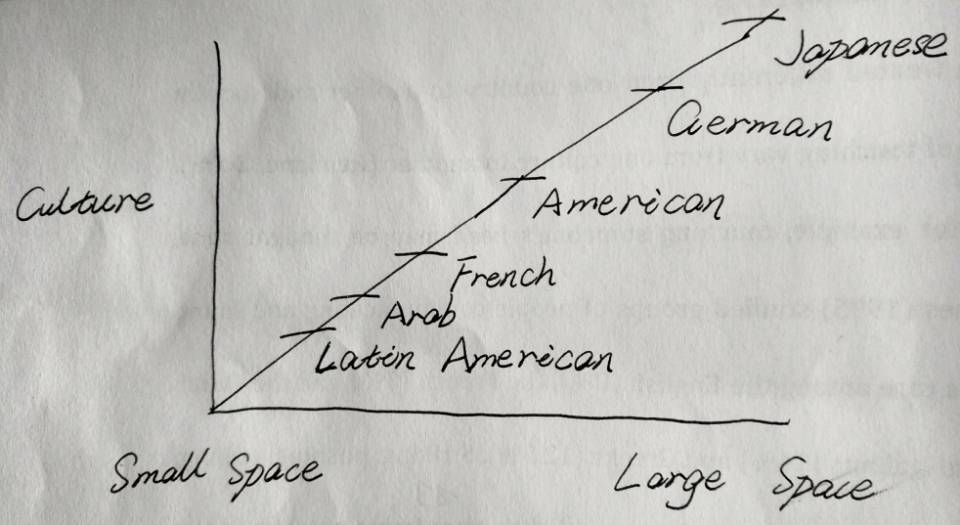 Japanese
German
American
Culture
French
Arab
Latin American
Small Space
Large Space